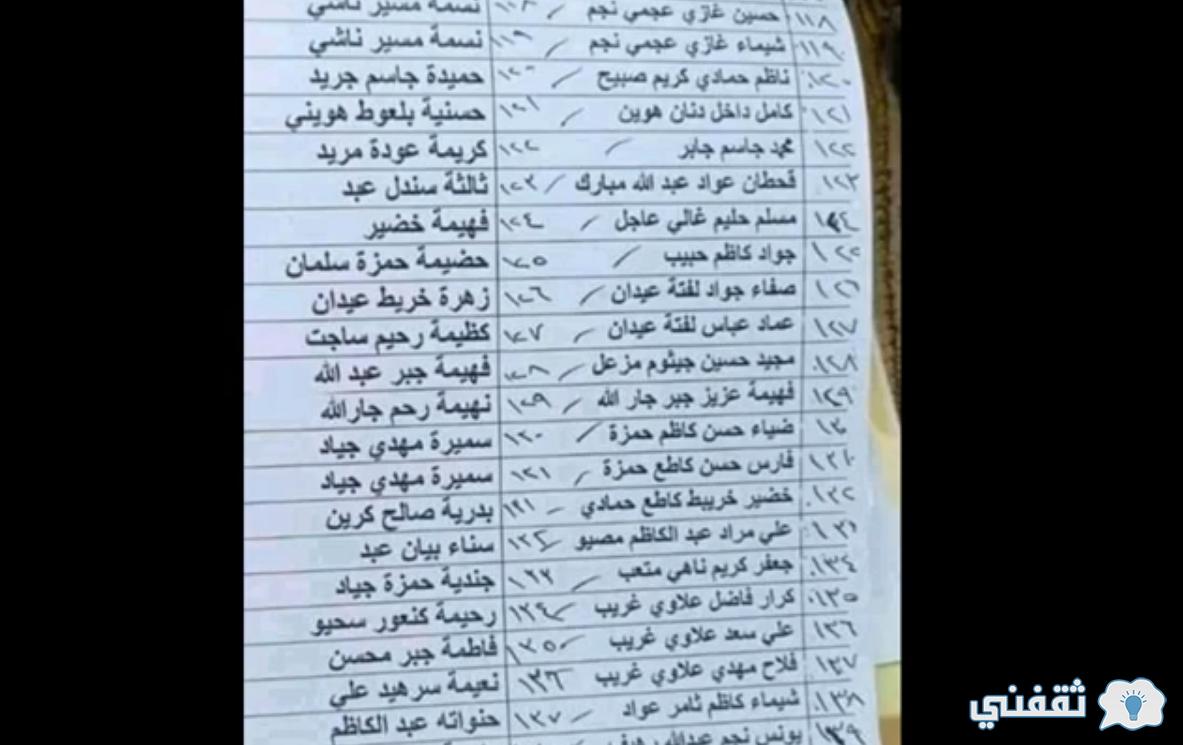 ١١٨ حسين غازي عجمي نجم ١١٨ نسمة مسير ناشي
١١٩ شيماء غازي عجمي نجم ١١٩ نسمة مسير ناشي
١٢٠ ناظم حمادي كريم صبيح ١٢٠ حميدة جاسم جريد
١٢١ كامل داخل دنان هوين ١٢١ حسنية بلعوط هويني
١٢٢ محمد جاسم جابر ١٢٢ كريمة عودة مريد
١٢٣ قحطان عواد عبد الله مبارك ١٢٣ ثالثة سندل عبد
١٢٤ مسلم حليم غالي عاجل ١٢٤ فهيمة خضير
١٢٥ جواد كاظم حبيب ١٢٥ حضيمة حمزة سلمان
١٢٦ صفاء جواد لفتة عيدان ١٢٦ زهرة خريط عيدان
١٢٧ عماد عباس لفتة عيدان ١٢٧ كظيمة رحيم ساجت
١٢٨ مجيد حسين جيثوم مزعل ١٢٨ فهيمة جبر عبد الله
١٢٩ فهيمة عزيز جبر جار الله ١٢٩ نهيمة رحم جارالله
١٣٠ ضياء حسن كاظم حمزة ١٣٠ سميرة مهدي جياد
١٣١ فارس حسن كاطع حمزة ١٣١ سميرة مهدي جياد
١٣٢ خضير خريبط كاطع حمادي بدرية صالح كرين
١٣٣ علي مراد عبد الكاظم مصيو سناء بيان عبد
١٣٤ جعفر كريم ناهي متعب ١٣٣ جندية حمزة جياد
١٣٥ كرار فاضل علاوي غريب ١٣٤ رحيمة كنعور سحيو
١٣٦ علي سعد علاوي غريب ١٣٥ فاطمة جبر محسن
١٣٧ فلاح مهدي علاوي غريب ١٣٦ نعيمة سرهيد علي
١٣٨ شيماء كاظم ثامر عواد ١٣٧ حنواته عبد الكاظم
١٣٩ يونس نجم عبدالله
ثقفني